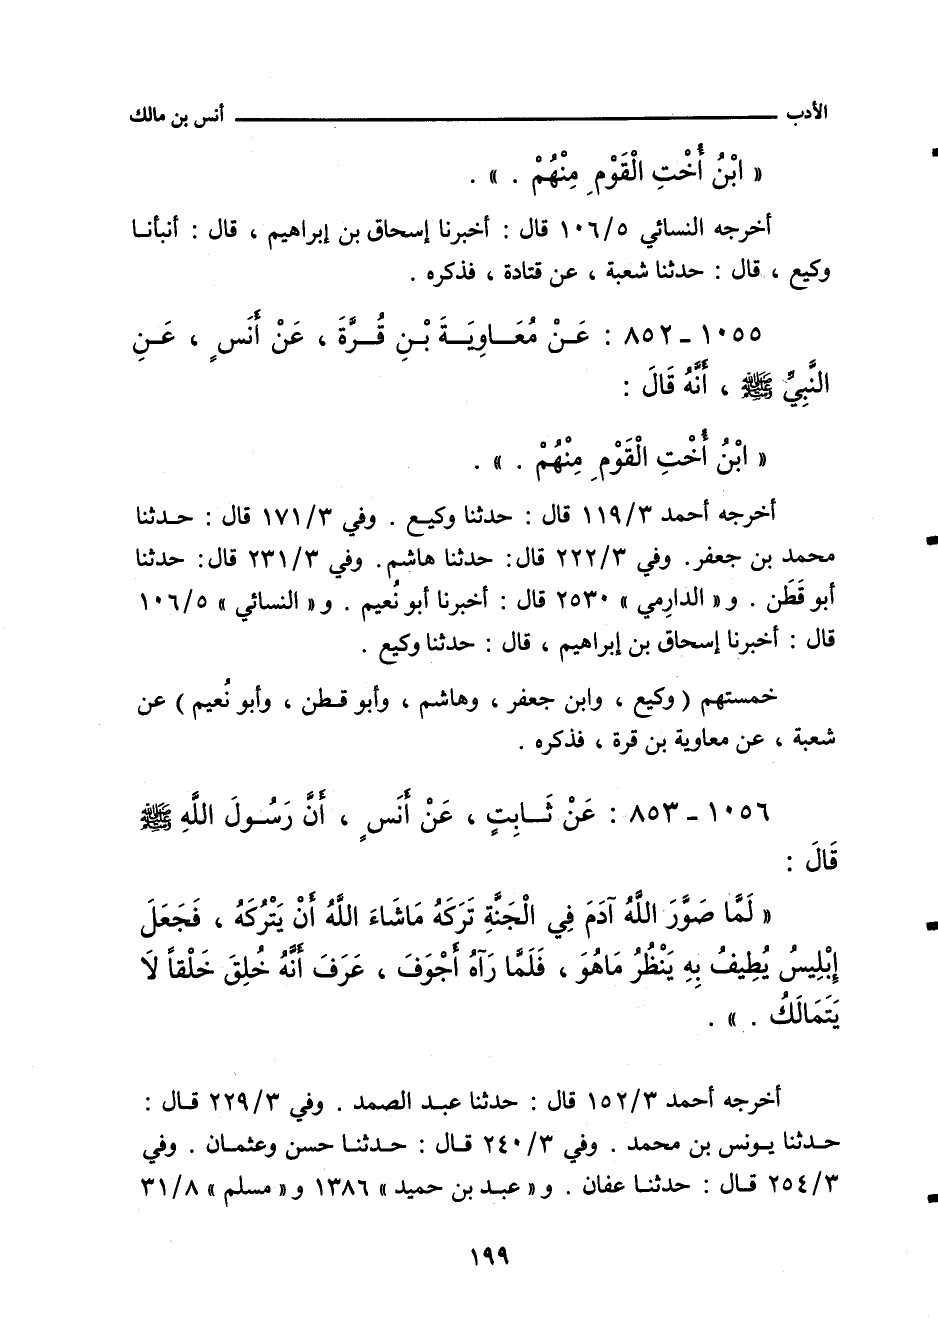 الأدب ــــــــــــــــــــــــــــــــ أنس بن مالك
« ابْنُ أُخْتِ الْقَوْمِ مِنْهُمْ . » .
أخرجه النسائي ١٠٦/٥ قال : أخبرنا إسحاق بن إبراهيم ، قال : أنبأنا
وكيع ، قال : حدثنا شعبة ، عن قتادة ، فذكره .
١٠٥٥ ـ ٨٥٢ : عَنْ مُعَاوِيَةَ بْنِ قُرَّةَ ، عَنْ أَنَسٍ ، عَنِ
النَّبِيِّ ﷺ ، أَنَّهُ قَالَ :
« ابْنُ أُخْتِ الْقَوْمِ مِنْهُمْ . » .
أخرجه أحمد ١١٩/٣ قال : حدثنا وكيع . وفي ١٧١/٣ قال : حدثنا
محمد بن جعفر. وفي ٢٢٢/٣ قال: حدثنا هاشم. وفي ٢٣١/٣ قال: حدثنا
أبو قَطَن . و« الدارمي » ٢٥٣٠ قال : أخبرنا أبو نُعيم . و« النسائي » ١٠٦/٥
قال : أخبرنا إسحاق بن إبراهيم ، قال : حدثنا وكيع .
خمستهم ( وكيع ، وابن جعفر ، وهاشم ، وأبو قطن ، وأبو نُعيم ) عن
شعبة ، عن معاوية بن قرة ، فذكره .
١٠٥٦ ـ ٨٥٣ : عَنْ ثَابِتٍ ، عَنْ أَنَسٍ ، أَنَّ رَسُولَ اللَّهِ ﷺ
قَالَ :
« لَمَّا صَوَّرَ اللَّهُ آدَمَ فِي الْجَنَّةِ تَرَكَهُ مَاشَاءَ اللَّهُ أَنْ يَتْرُكَهُ ، فَجَعَلَ
إِبْلِيسُ يُطِيفُ بِهِ يَنْظُرُ مَاهُوَ ، فَلَمَّا رَآهُ أَجْوَفَ ، عَرَفَ أَنَّهُ خُلِقَ خَلْقاً لَا
يَتَمَالَكُ . » .
أخرجه أحمد ١٥٢/٣ قال : حدثنا عبد الصمد . وفي ٢٢٩/٣ قال :
حدثنا يونس بن محمد . وفي ٢٤٠/٣ قال : حدثنا حسن وعثمان . وفي
٢٥٤/٣ قال : حدثنا عفان . و« عبد بن حميد » ١٣٨٦ و« مسلم » ٣١/٨
١٩٩